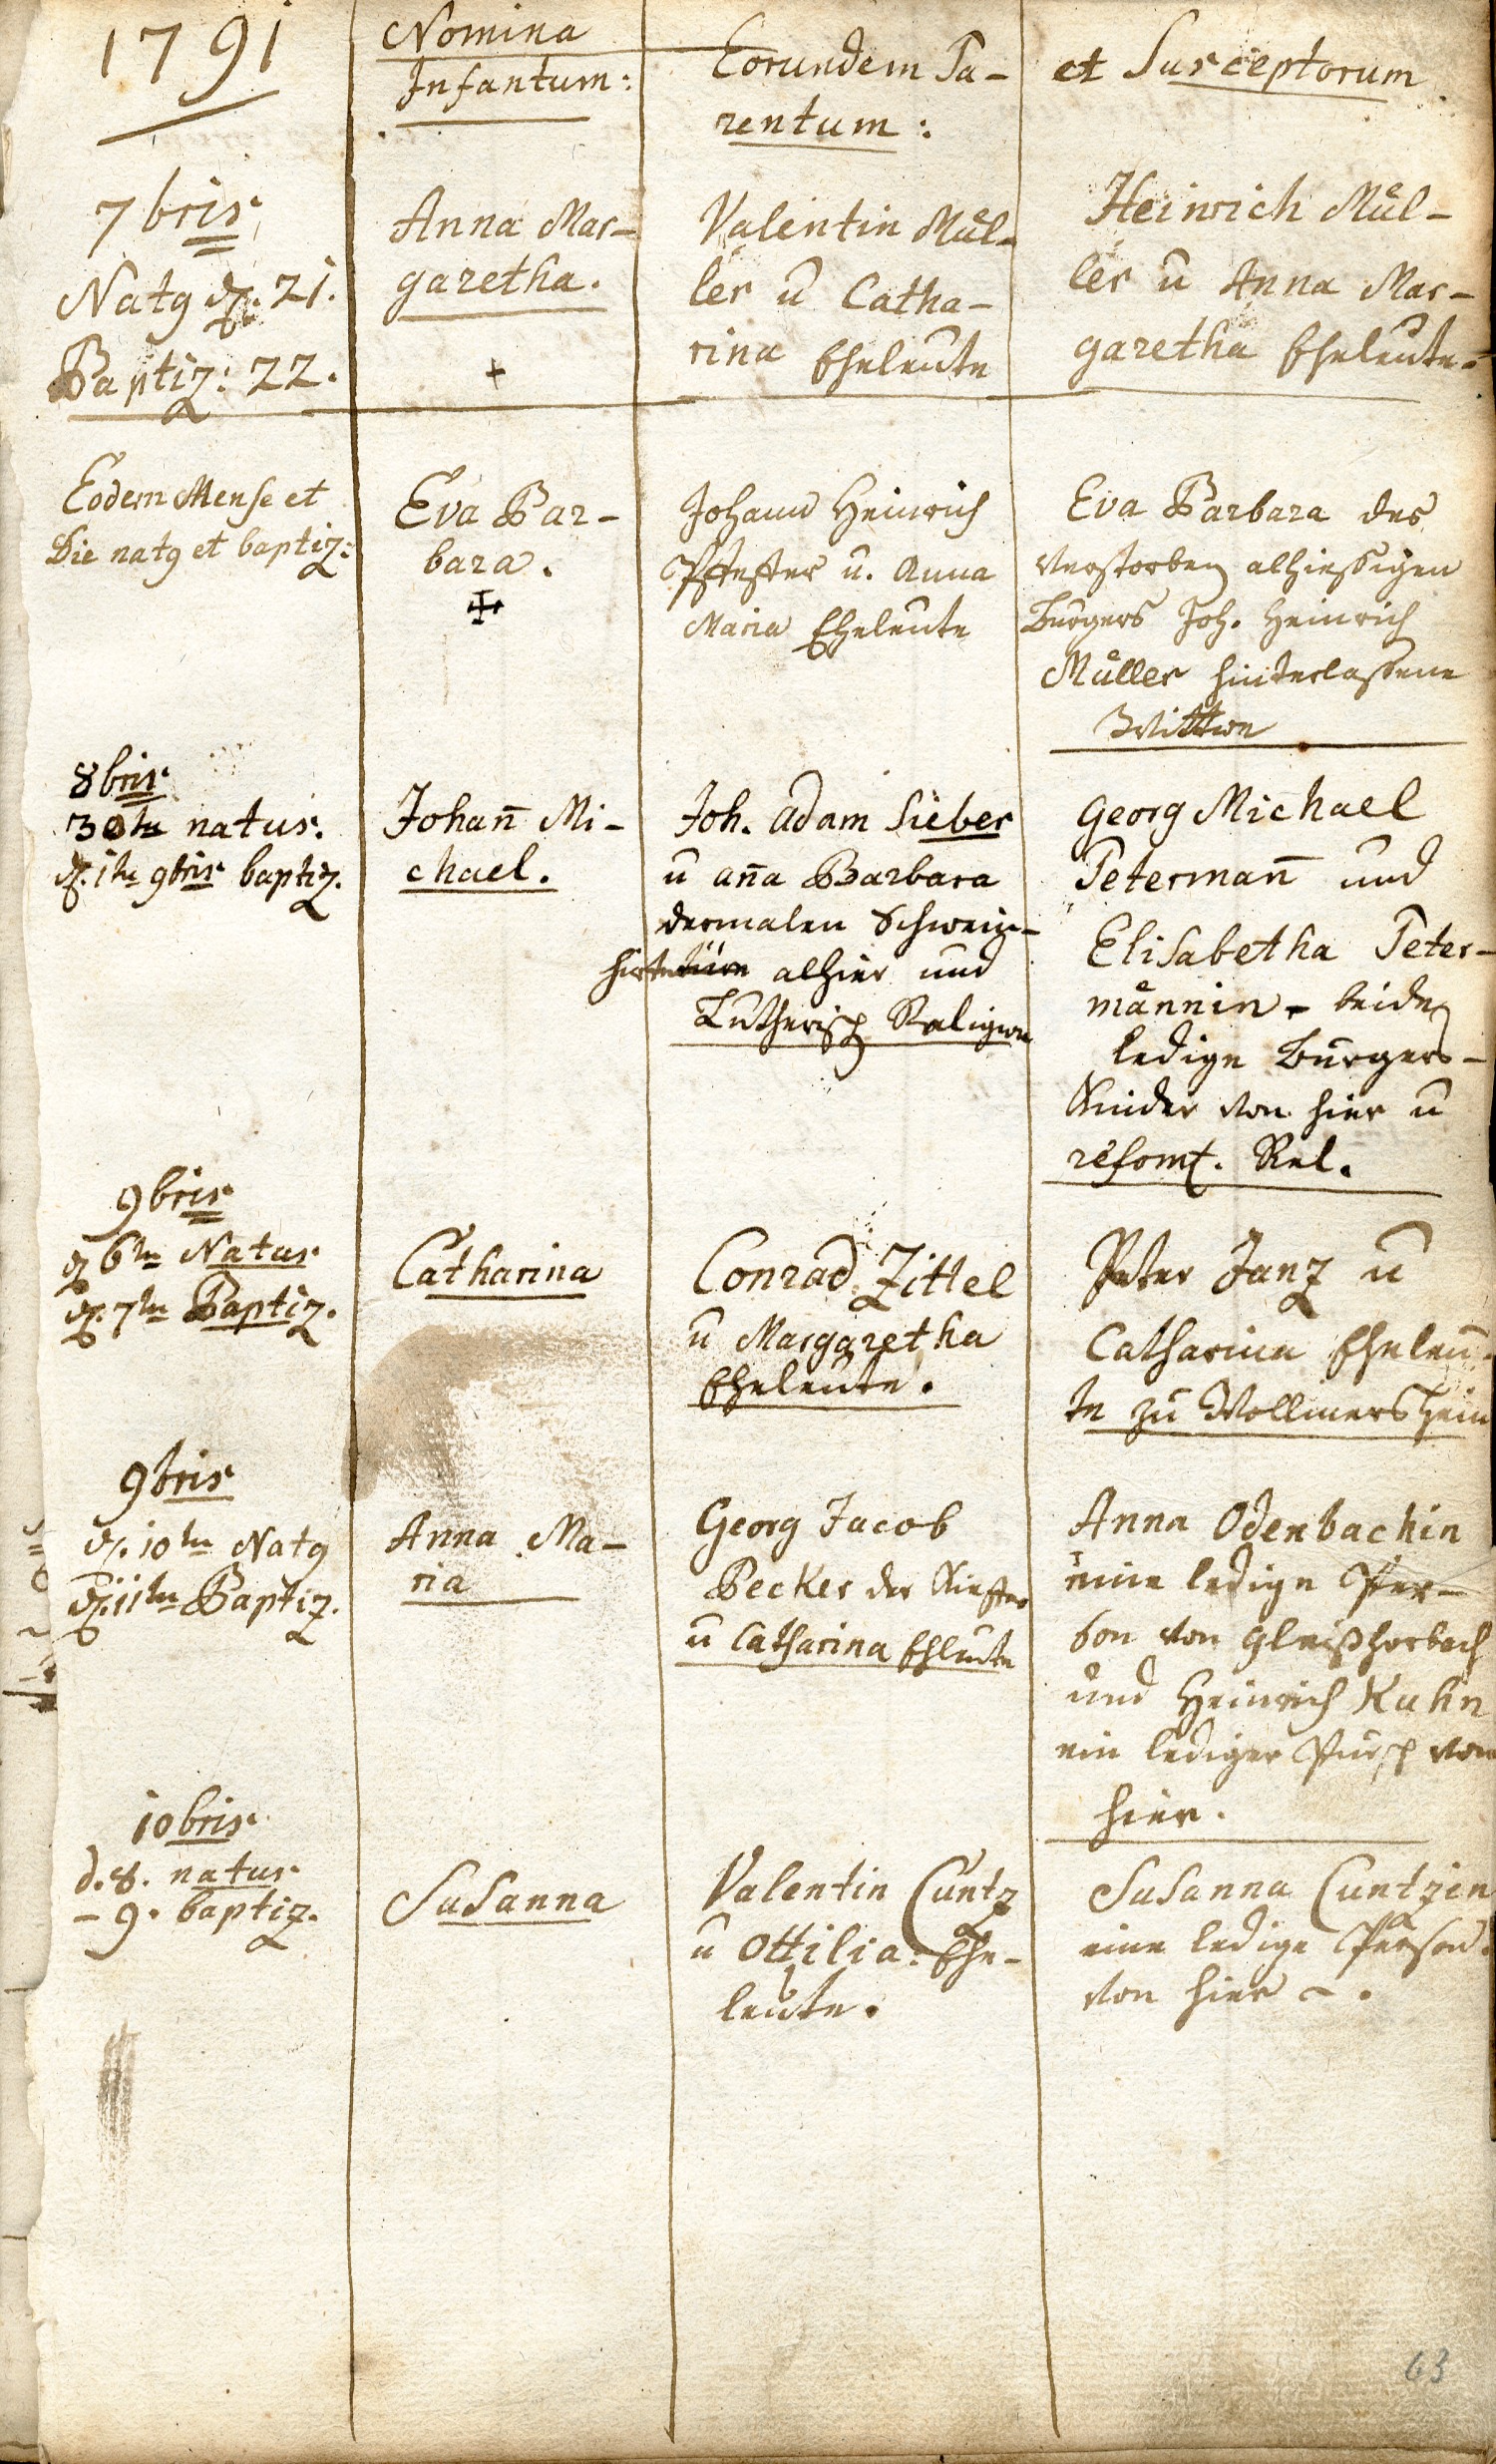 1791
Nomina
Infantum:
Eorundem Pa-
rentum:
et Susceptorum
7bris
Natg d. 21.
Baptiz: 22.
Anna Mar-
garetha.
+
Valentin Mül-
ler u Catha-
rina Eheleute
Heinrich Mül-
ler u Anna Mar-
garetha Eheleute.
Eodem Mense et
Die natg et baptiz:
Eva Bar-
bara.
+
Johann Heinrich
Pfeffer u. Anna
Maria Eheleute
Eva Barbara des
verstorben alhiesigen
Burgers Joh. Heinrich
Müller hinterlaßene
Wittwe
8bris
30te natus.
d. 1te 9bris baptiz.
Johan̄ Mi-
chael.
Joh. Adam Sieber
u an̄a Barbara
dermalen Schwein-
hirten alhier und
Lutherisch Religion
Georg Michael
Peterman̄ und
Elisabetha Peter-
männin - beide
ledige Burgers-
Kinder von hier u
reformt. Rel.
9bris
d 6te Natus
d. 7te Baptiz.
Catharina
Conrad Zittel
u Margaretha
Eheleute.
Peter Janz u
Catharina Eheleu-
te zu Wollmersheim
9bris
d. 10te Natg
d. 11te Baptiz.
Anna Ma-
ria
Georg Jacob
Becker der Kieffer
u Catharina Ehleute
Anna Odenbachin
eine ledige Per-
son von Gleißhorbach
und Heinrich Kuhn
ein lediger Pursch von
hier.
10bris
d. 8. natus
- 9. baptiz.
Susanna
Valentin Cuntz
u Ottilia: Ehe-
leute.
Susanna Cuntzin
eine ledige Person
von hier - .
63